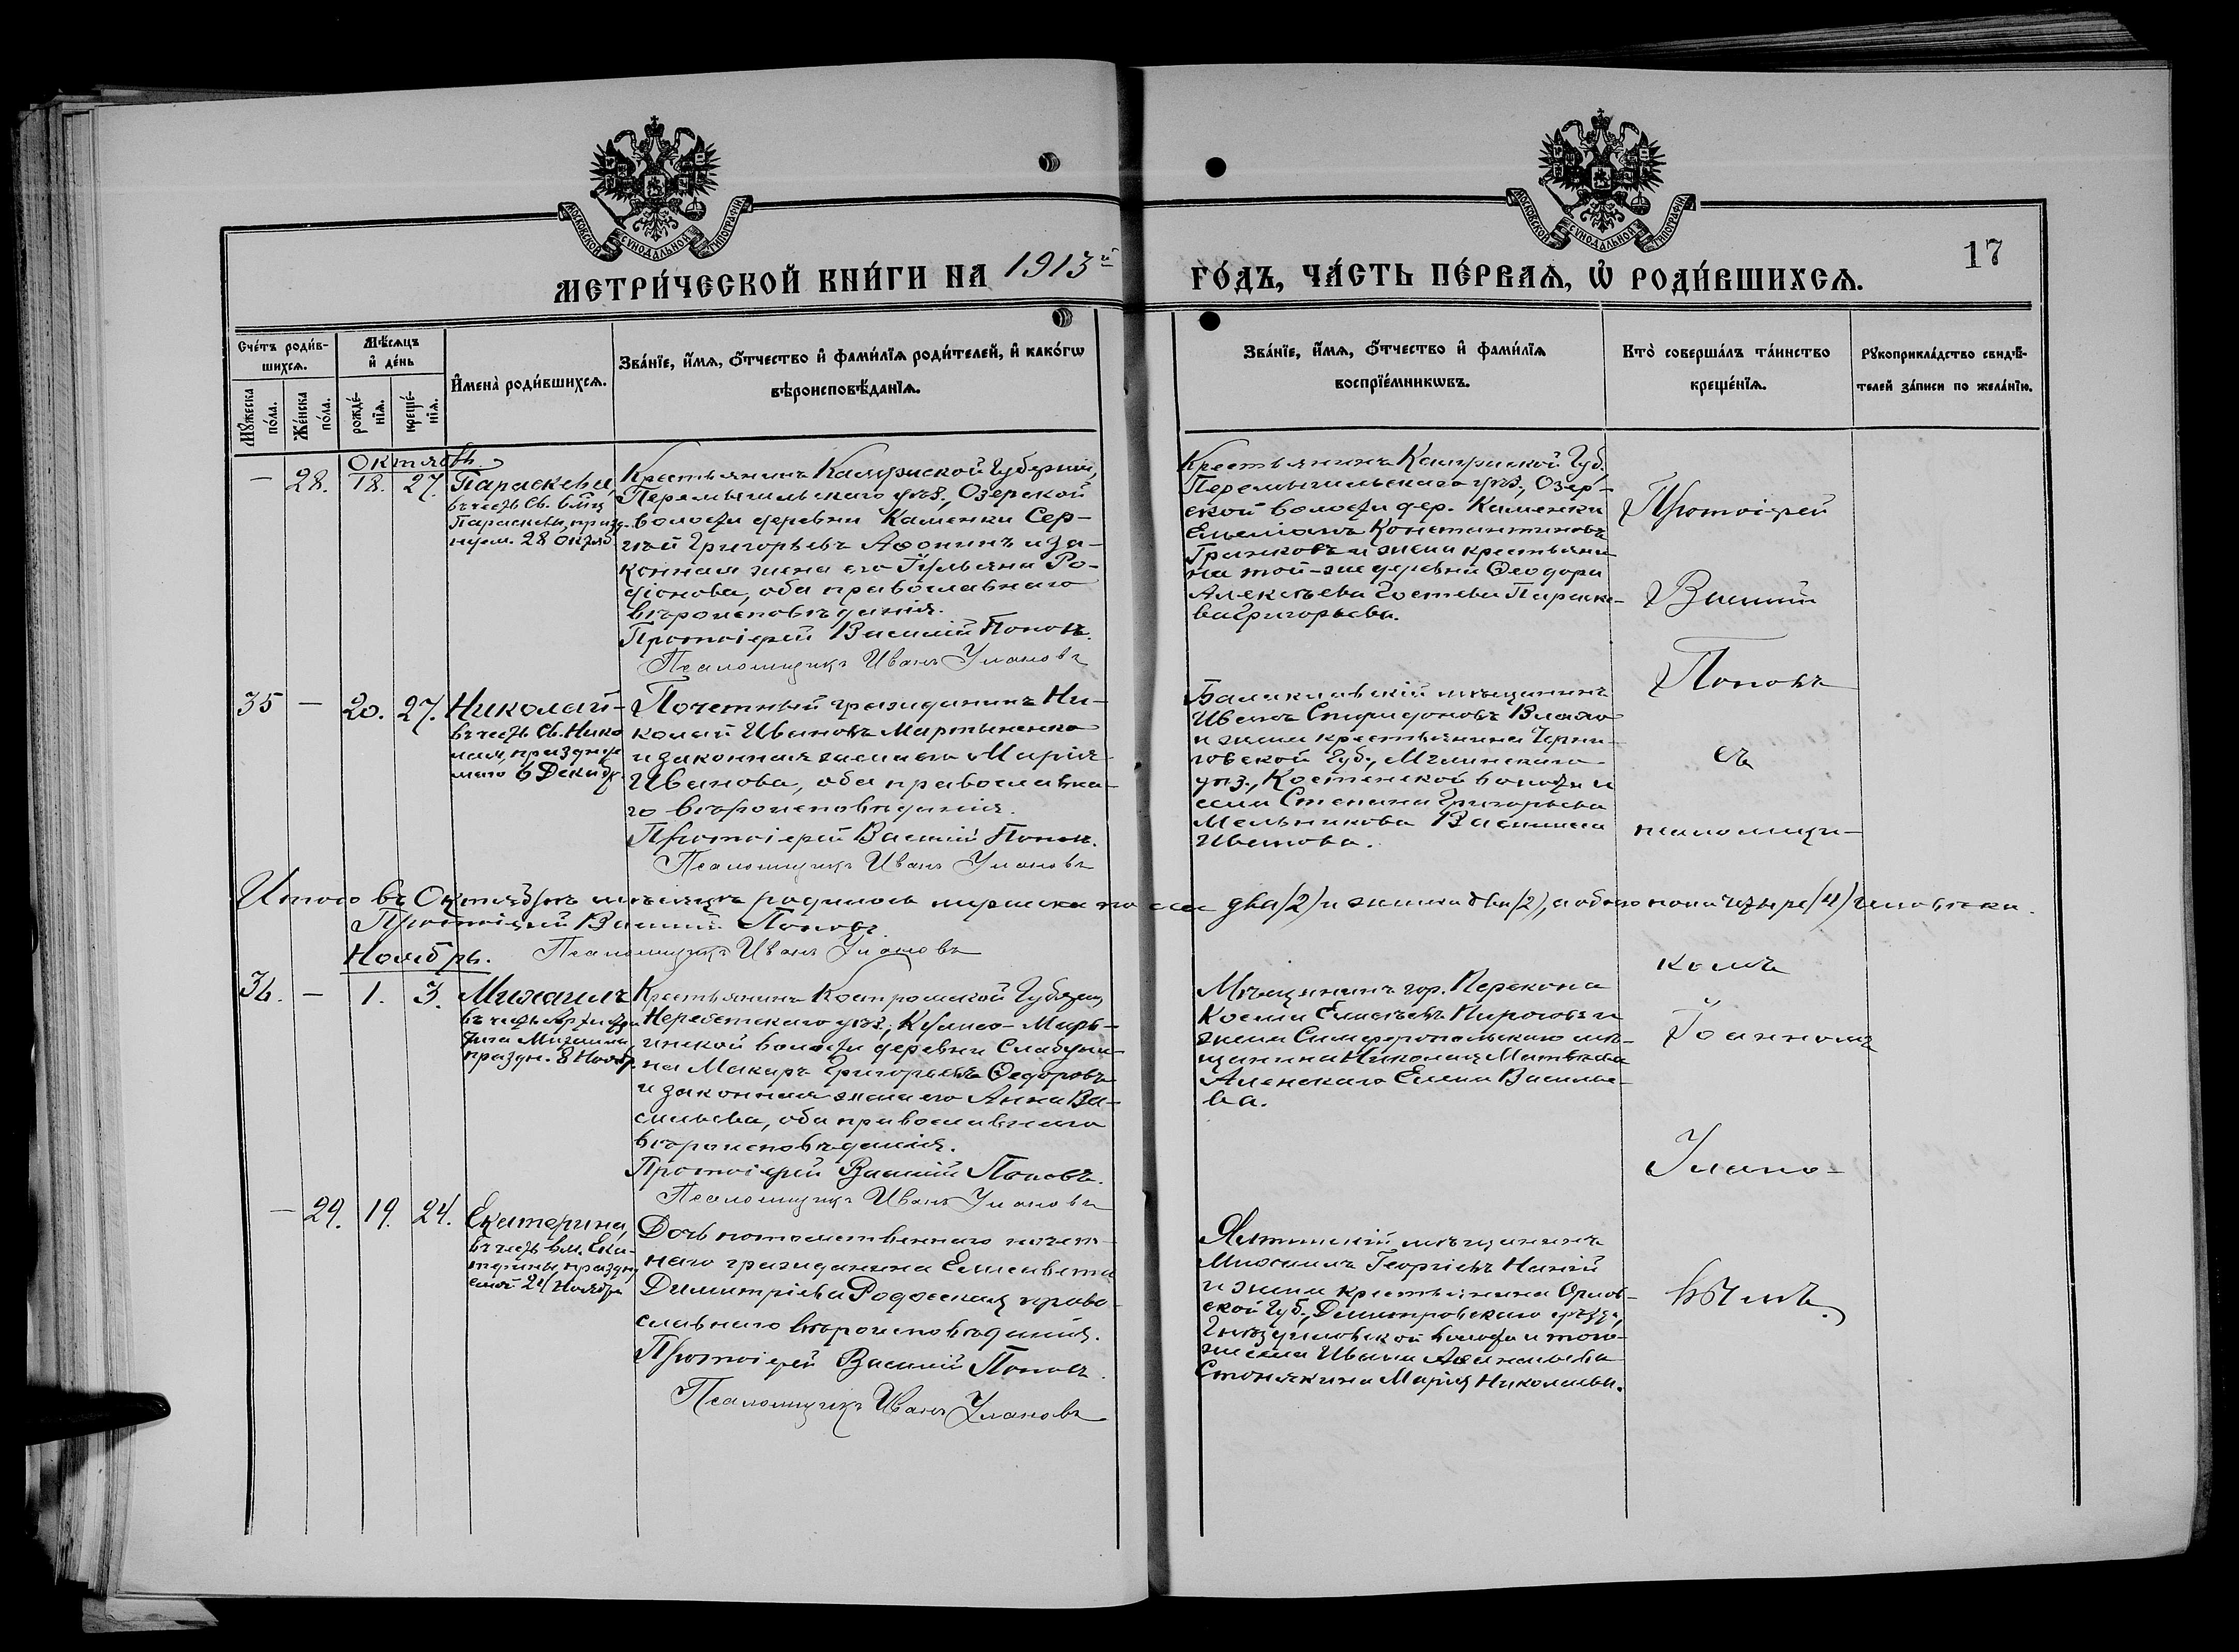 МОСКОВСКОЙ СѴНОДАЛЬНОЙ ТИПОГРАФІИ
МОСКОВСКОЙ СѴНОДАЛЬНОЙ ТИПОГРАФІИ
17
МЕТРИ́ЧЕСКОЙ КНИ́ГИ НА 1913й ГО́ДЪ, ЧА́СТЬ ПЕ́РВАѦ, Ѡ҆ РОДИ́ВШИХСѦ.
Сче́тъ роди́в-
шихсѧ.
Мꙋ́жеска по́ла.
Же́нска по́ла.
Мѣ́сѧцъ
и҆ де́нь
рожде́-
нїѧ.
креще́-
нїѧ.
И҆мена̀ роди́вшихсѧ.
Зва́нїе, и҆́мѧ, ѻ҆́тчество и҆ фами́лїѧ роди́телей, и҆ како́гѡ
вѣроисповѣ́данїѧ.
Зва́нїе, и҆́мѧ, ѻ҆́тчество и҆ фами́лїѧ
воспрїе́мникѡвъ.
Кто̀ соверша́лъ та́инство
креще́нїѧ.
Рꙋкоприкла́дство свидѣ́-
телей за́писи по жела́нїю.
Октябрь
— 28. 18. 27. Параскева,
въ честь Св. Вмц.
Параскевы, празд-
нуем. 28 Октяб.
Крестьянинъ Калужской Губерніи,
Перемышльскаго уѣз., Озерской
волости деревни Каменки Сер-
гѣй Григорьевъ Афонинъ и за-
конная жена его Іуліанія Ро-
діонова, оба православнаго
вѣроисповѣданія.
Протоіерей Василій Поповъ.
Псаломщикъ Иванъ Улановъ
Крестьянинъ Калужской Губ.,
Перемышльскаго уѣз., Озер-
ской волости дер. Каменки
Емеліанъ Константиновъ
Грачковъ и жена крестьяни-
на той-же деревни Ѳеодора
Алексѣева Гостева Параске-
ва Григорьева.
35 — 20. 27. Николай-
въ честь Св. Нико
лая, празднуе
маго 6 Декабр.
Почетный гражданинъ Ни-
колай Ивановъ Мартыненко
и законная жена его Марія
Иванова, оба православна-
го вѣроисповѣданія.
Протоіерей Василій Поповъ.
Псаломщикъ Иванъ Улановъ
Балаклавскій мѣщанинъ
Иванъ Спиридоновъ Влахо
и жена крестьянина Черни-
говской Губ., Мглинскаго
уѣз., Костенской волости и
села Степана Григорьева
Мельникова Васса
Иванова.
Итого въ Октябрѣ мѣсяцѣ родилось мужеска пола два (2) и женска два (2), а обоего пола четыре (4) человѣка.
Протоіерей Василій Поповъ.
Псаломщикъ Иванъ Улановъ
Ноябрь.
36. — 1. 3. Михаилъ
въ честь Архистра
тига Михаила
праздн. 8 Нояб.
Крестьянинъ Костромской Губерніи,
Нерехтскаго уѣз.,
волости деревни
Макаръ Григорьевъ Ѳедоровъ
и законная жена его Анна Ва-
сильева, оба православнаго
вѣроисповѣданія.
Протоіерей Василій Поповъ.
Псаломщикъ Иванъ Улановъ
Мѣщанинъ гор. Перекопа
Косма Елисѣевъ Пироговъ и
жена Симферопольскаго мѣ-
щанина Николая Матвѣева
Аленскаго Елена Василье-
ва.
— 29. 19. 24. Екатерина,
въ честь Вм. Ека-
терины, праздну
емой 24 Ноября
Дочь потомственнаго почет-
наго гражданина Елисавета
Димитріева Родосская право-
славнаго вѣроисповѣданія.
Протоіерей Василій Поповъ.
Псаломщикъ Иванъ Улановъ
Ялтинскій мѣщанинъ
Михаилъ Георгіевъ
и жена крестьянина Орлов-
ской Губ., Димитровскаго уѣзда,
Гнѣздиловской волости и того-
же села Ивана Аѳанасьева
Стонякина Марія Николаева.
Протоіерей
Василій
Поповъ
съ
псаломщи-
комъ
Іоанномъ
Улано-
вымъ.